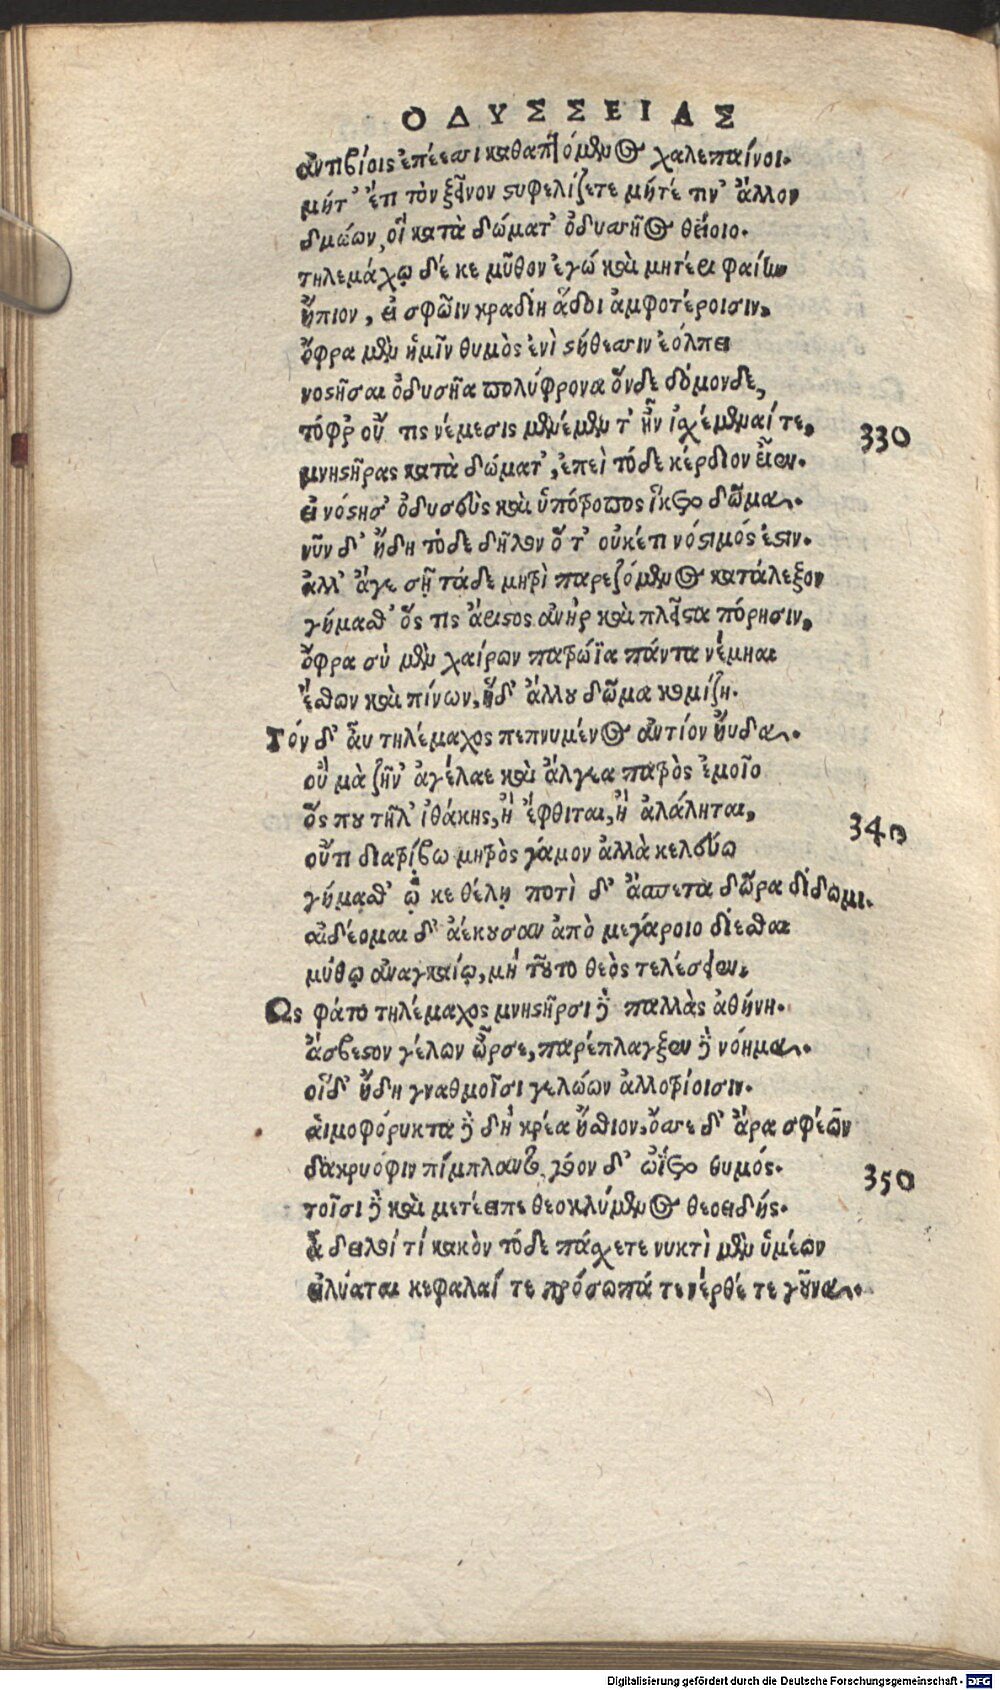 ΟΔΥΣΣΕΙΑΣ
ἀντιβίοις ἐπέεσσι καθαπτόμενος χαλεπαίνοι.
μήτ' ἔτι τὸν ξεῖνον στυφελίζετε μήτέ τιν' ἄλλον
δμώων, οἳ κατὰ δώματ' ὀδυσσῆος θείοιο.
τηλεμάχῳ δέ κε μῦθον ἐγώ καὶ μητέρι φαίην
ἤπιον, εἰ σφῶιν κραδίῃ ἅδοι ἀμφοτέροισιν,
ὄφρα μὲν ἡμῖν θυμὸς ἐνὶ στήθεσσιν ἐόλπει
νοστῆσαι ὀδυσῆα πολύφρονα ὅνδε δόμονδε,
τόφρ οὔ τις νέμεσις μενέμεν τ' ἦν ἰσχέμεναί τε,
330
μνηστῆρας κατὰ δώματ', ἐπεὶ τόδε κέρδιον εἶεν.
εἰ νόστησ' ὀδυσεὺς καὶ ὑπότροπος ἵκετο δῶμα.
νῦν δ' ἤδη τόδε δῆλον ὅ τ' οὐκέτι νόστιμός ἐστιν.
ἀλλ' ἄγε σῇ τάδε μητρὶ παρεζόμενος κατάλεξον
γήμασθ' ὅς τις ἄριστος ἀνὴρ καὶ πλεῖστα πόρησιν,
ὄφρα σὺ μὲν χαίρων πατρώϊα πάντα νέμηαι
ἔσθων καὶ πίνων, ἡδ' ἄλλου δῶμα κομίζῃ.
Τόν δ' αὖ τηλέμαχος πεπνυμένος ἀντίον ηὔδα.
οὐ μὰ ζῆν' ἀγέλαε καὶ ἄλγεα πατρὸς ἐμοῖο
ὅς που τῆλ' ἰθάκης, ἢ ἔφθιται, ἢ ἀλάληται,
340
οὔτι διατρίβω μητρὸς γάμον ἀλλὰ κελεύω
γήμασθ' ᾧ κε θέλῃ ποτὶ δ' ἄσπετα δῶρα δίδωμι.
αἰδέομαι δ' ἀέκουσαν ἀπὸ μεγάροιο δίεσθαι
μύθῳ ἀναγκαίῳ, μὴ τοῦτο θεὸς τελέσειεν.
Ὣς φάτο τηλέμαχος μνηστῆρσι δὲ παλλὰς ἀθήνη.
ἄσβεστον γέλων ὦρσε, παρέπλαγξεν δὲ νόημα.
οἳδ' ἤδη γναθμοῖσι γελώων ἀλλοτρίοισιν.
αἱμοφόρυκτα δὲ δὴ κρέα ἤσθιον, ὄσσε δ' ἄρα σφέων
δακρυόφιν πίμπλαντο, γόον δ' ὠΐετο θυμός.
350
τοῖσι δὲ καὶ μετέειπε θεοκλύμενος θεοειδής.
ἆ δειλοί τί κακὸν τόδε πάσχετε νυκτὶ μὲν ὑμέων
εἰλύαται κεφαλαί τε πρόσωπά τε νέρθέ τε γοῦνα.
Digitalisierung gefördert durch die Deutsche Forschungsgemeinschaft - DFG